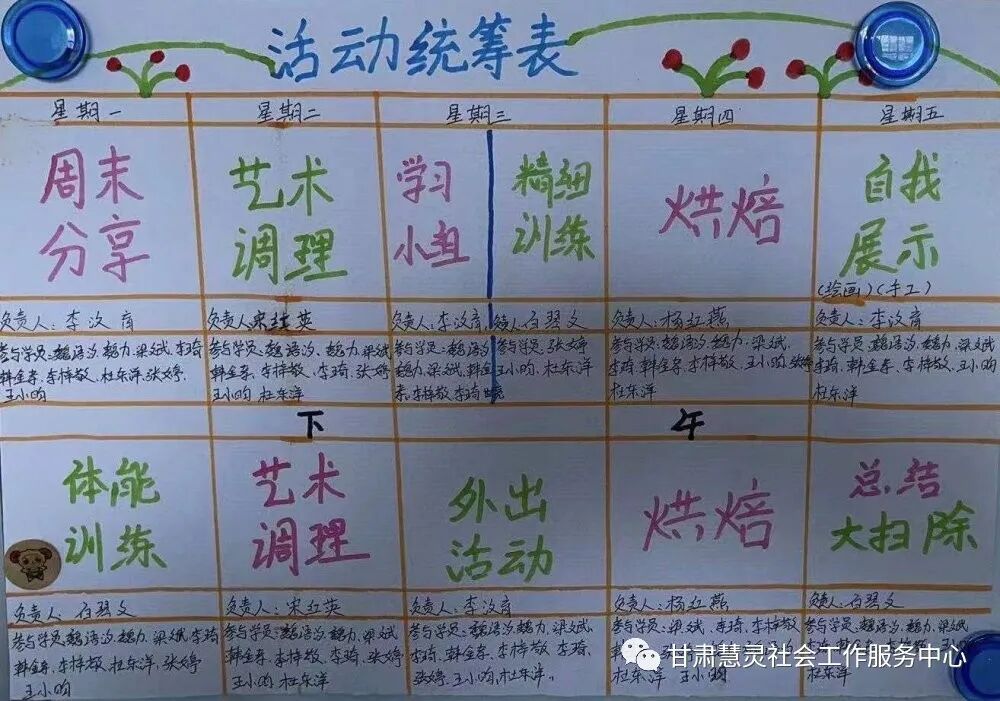 活动统筹表
星期一 星期二 星期三 星期四 星期五
周末 艺术 学习 精细 烘焙 自我
分享 调理 小组 训练 展示
(绘画)(手工)
负责人:李汝育 负责人:宋红英 负责人:李汝育 负责人:白碧文 负责人:杨红燕 负责人:李汝育
参与学员:魏语汐、魏力、梁斌、李琦
韩金季、李梓敬、杜东洋、张婷、
王小昀
参与学员:魏语汐、魏力、梁斌
韩金季、李梓敬、李琦、张婷
王小昀、杜东洋
参与学员:魏语汐
魏力、梁斌、韩金
季、李梓敬、李琦
参与学员:张婷
王小昀、杜东洋
参与学员:魏语汐、魏力、梁斌、
李琦、韩金季、李梓敬、王小昀、张婷、
杜东洋
参与学员:魏语汐、魏力、梁斌
李琦、韩金季、李梓敬、王小昀、张婷
杜东洋
下 午
体能 艺术 外出 烘焙 总结
训练 调理 活动 大扫除
负责人:白碧文 负责人:宋红英 负责人:李汝育 负责人:杨红燕 负责人:白碧文
参与学员:魏语汐、魏力、梁斌、李琦
韩金季、李梓敬、杜东洋、张婷
王小昀
参与学员:魏语汐、魏力、梁斌
韩金季、李梓敬、李琦、张婷
王小昀、杜东洋
参与学员:魏语汐、魏力、梁斌、
李琦、韩金季、李梓敬、李琦、
张婷、王小昀、杜东洋。
参与学员:梁斌、李琦、李梓敬
杜东洋 王小昀
参与学员:魏语汐、魏力、梁斌
杜东洋
甘肃慧灵社会工作服务中心